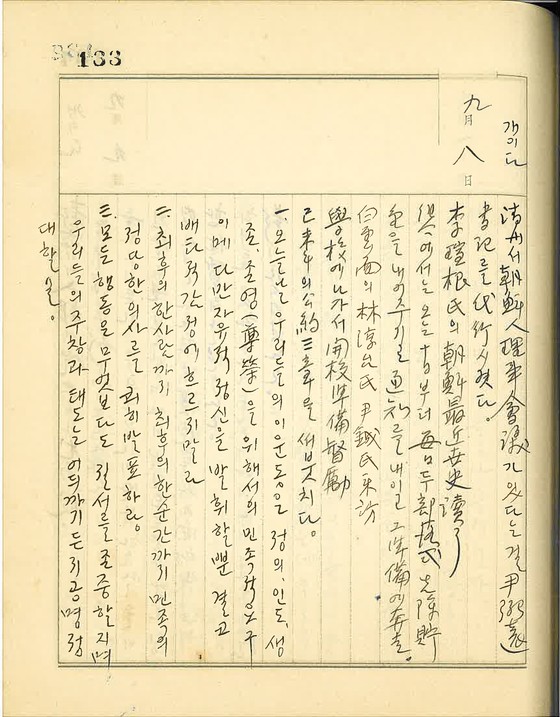 133
九月 八日
개이다
清州서 朝鮮人理事會議가 있다는걸 尹弼遠
書記를 代行시켰다.
李瑄根氏의 朝鮮最近世史 讀了
에서는 오는 十日부터 每日 두 部落式 貯
金을 내어주기로 通知를 내이고 그 準備에 奔走.
白雲面의 林淳台氏 尹鉞氏 來訪
學校에 나가서 開校準備 督勵
己未年의 公約三章을 써보치다.
一. 오늘날 우리들의 이 운동은 정의, 인도, 생
존, 존영(尊榮)을 위해서의 민족적 요구
이메 다만 자유적 정신을 발휘할뿐 결코
배타적 감정에 흐르지말라
二. 최후의 한사람까지 최후의 한순간까지 민족의
정당한 의사를 쾌히 발표하라
三. 모든 행동을 무엇보다도 질서를 존중할지며
우리들의 주창과 태도는 어듸까지든지 공명정
대할 것.